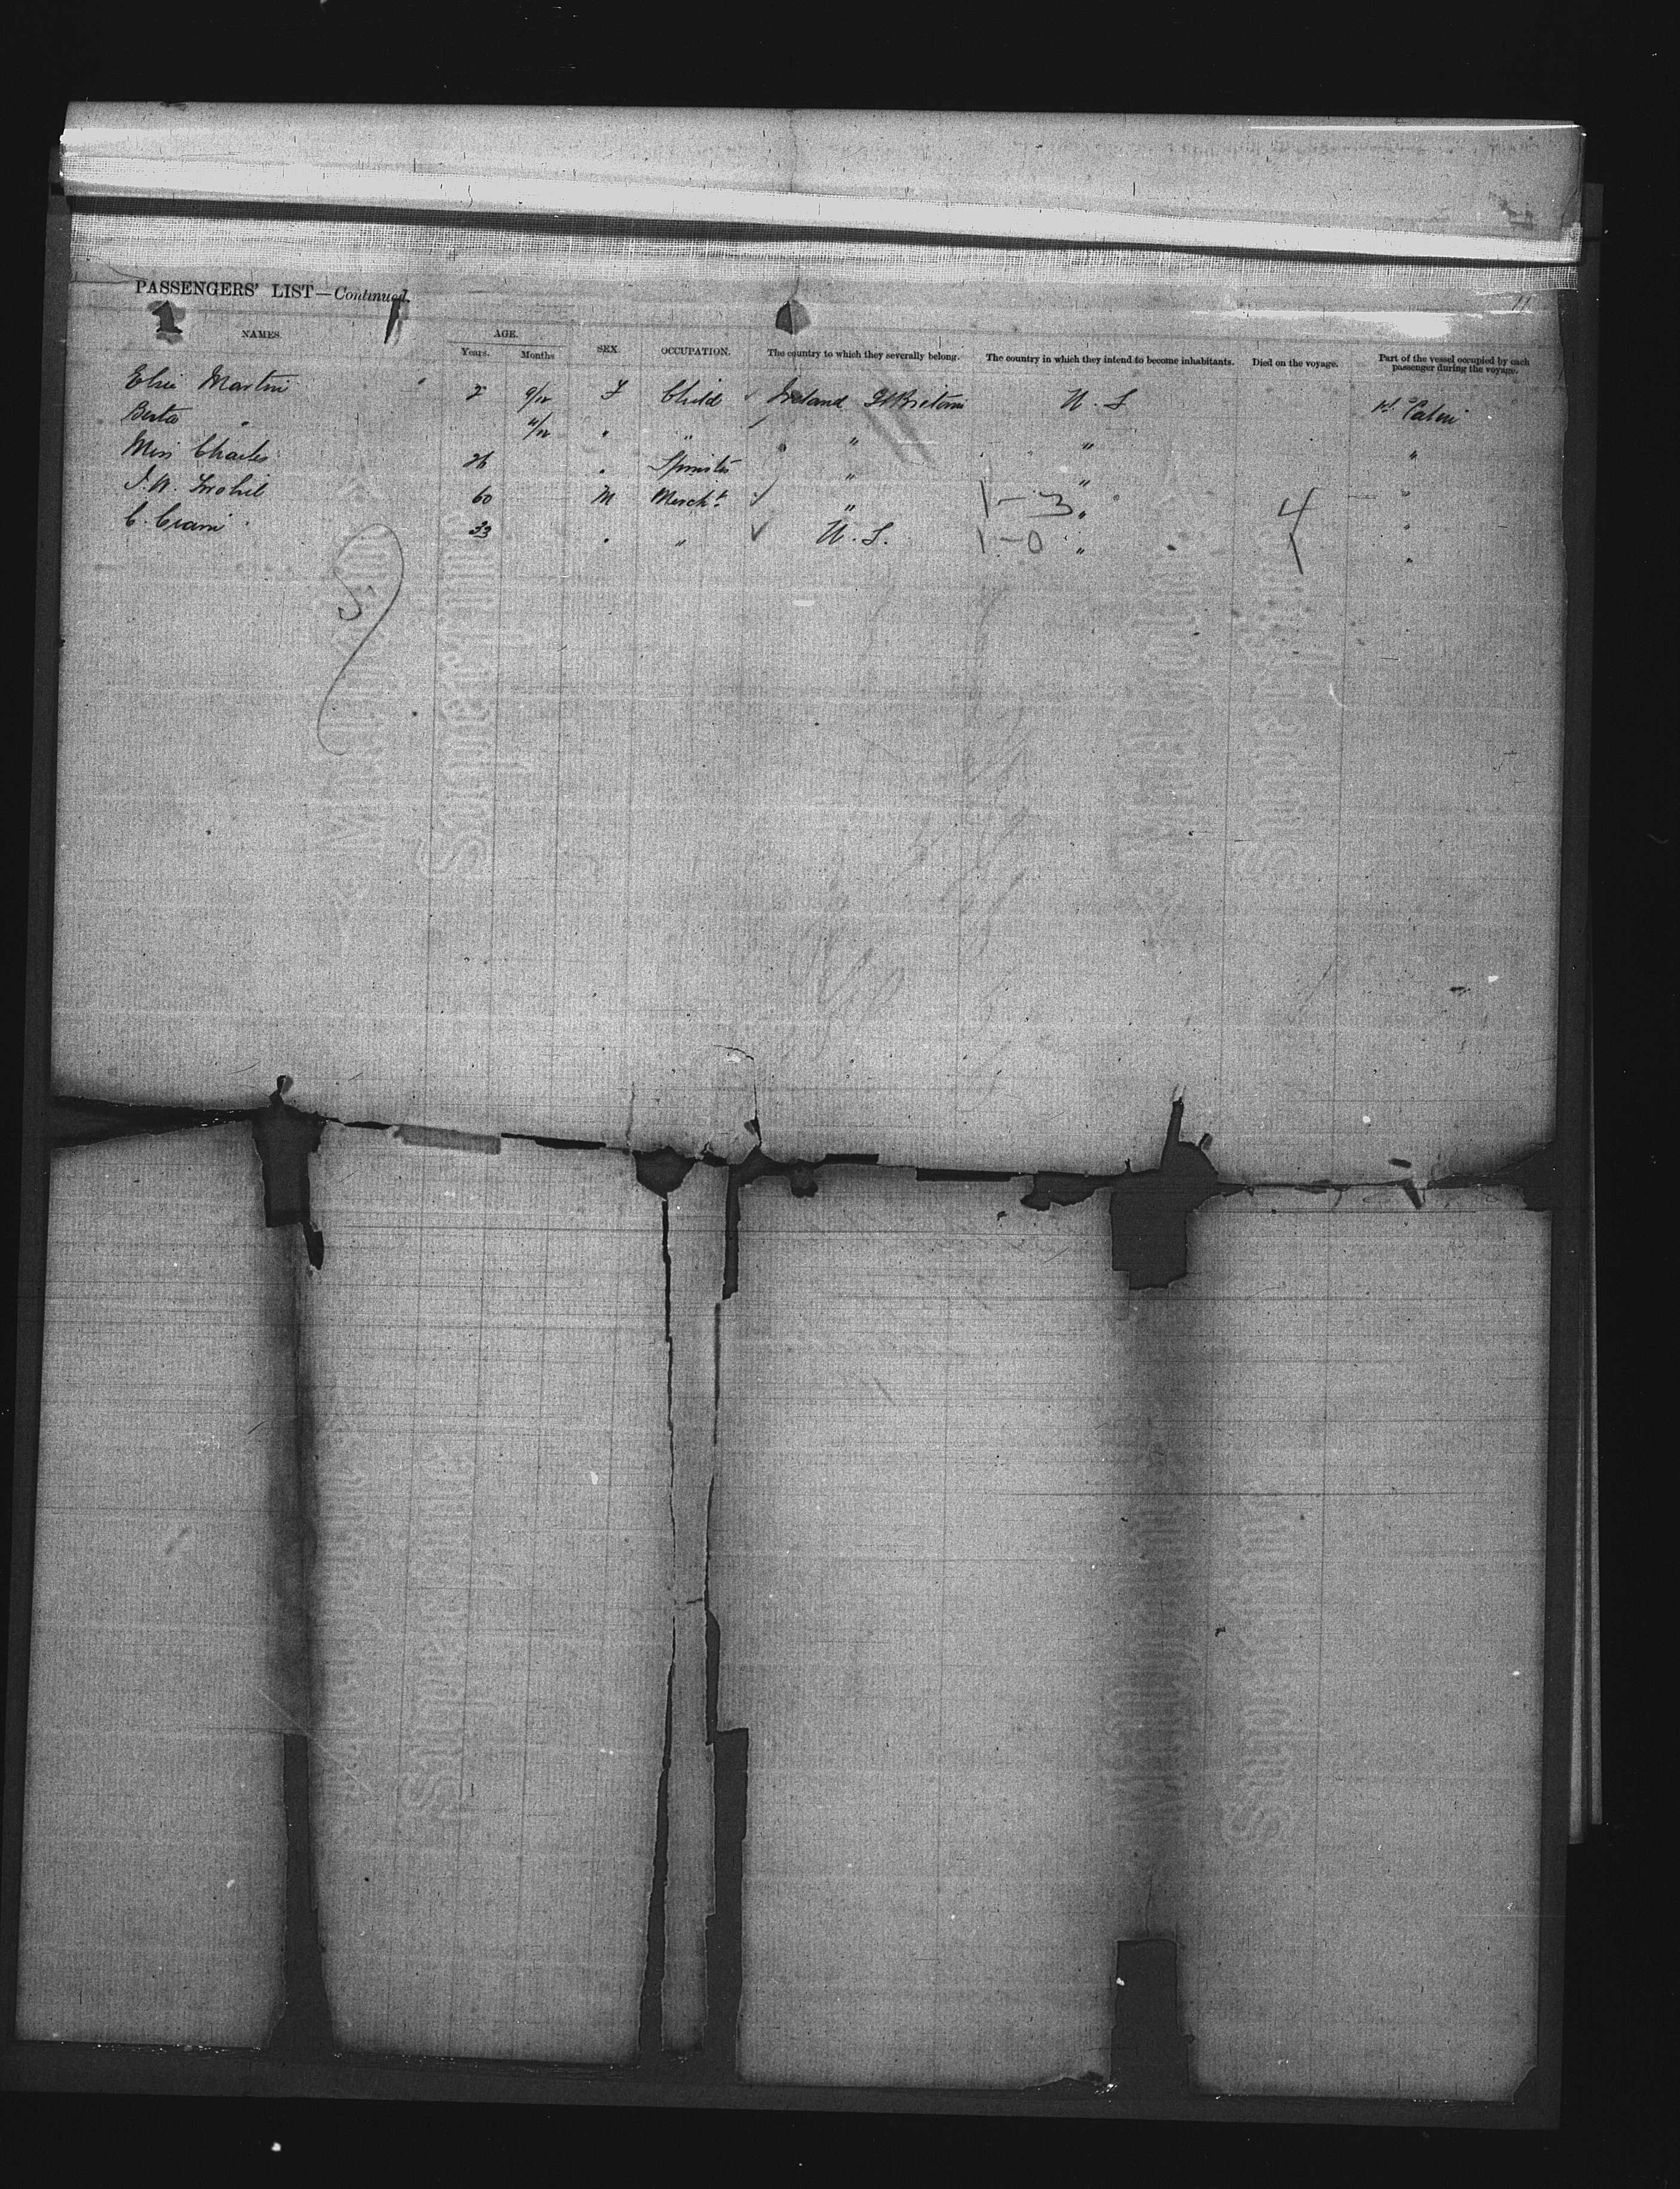 PASSENGERS' LIST—Continued.
11
NAMES. AGE. SEX. OCCUPATION. The country to which they severally belong. The country in which they intend to become inhabitants. Died on the voyage. Part of the vessel occupied by each passenger during the voyage.
Years. Months
Elsie Martin 2 9/12 F Child ✓ Ireland U. S
Berta " 11/12 " " " " "
Miss Charles 26 " Spinster " " "
60 M Mercht. ✓ " 1-3 " 4 "
C. 33 " " ✓ U. S. 1-0 " "
5